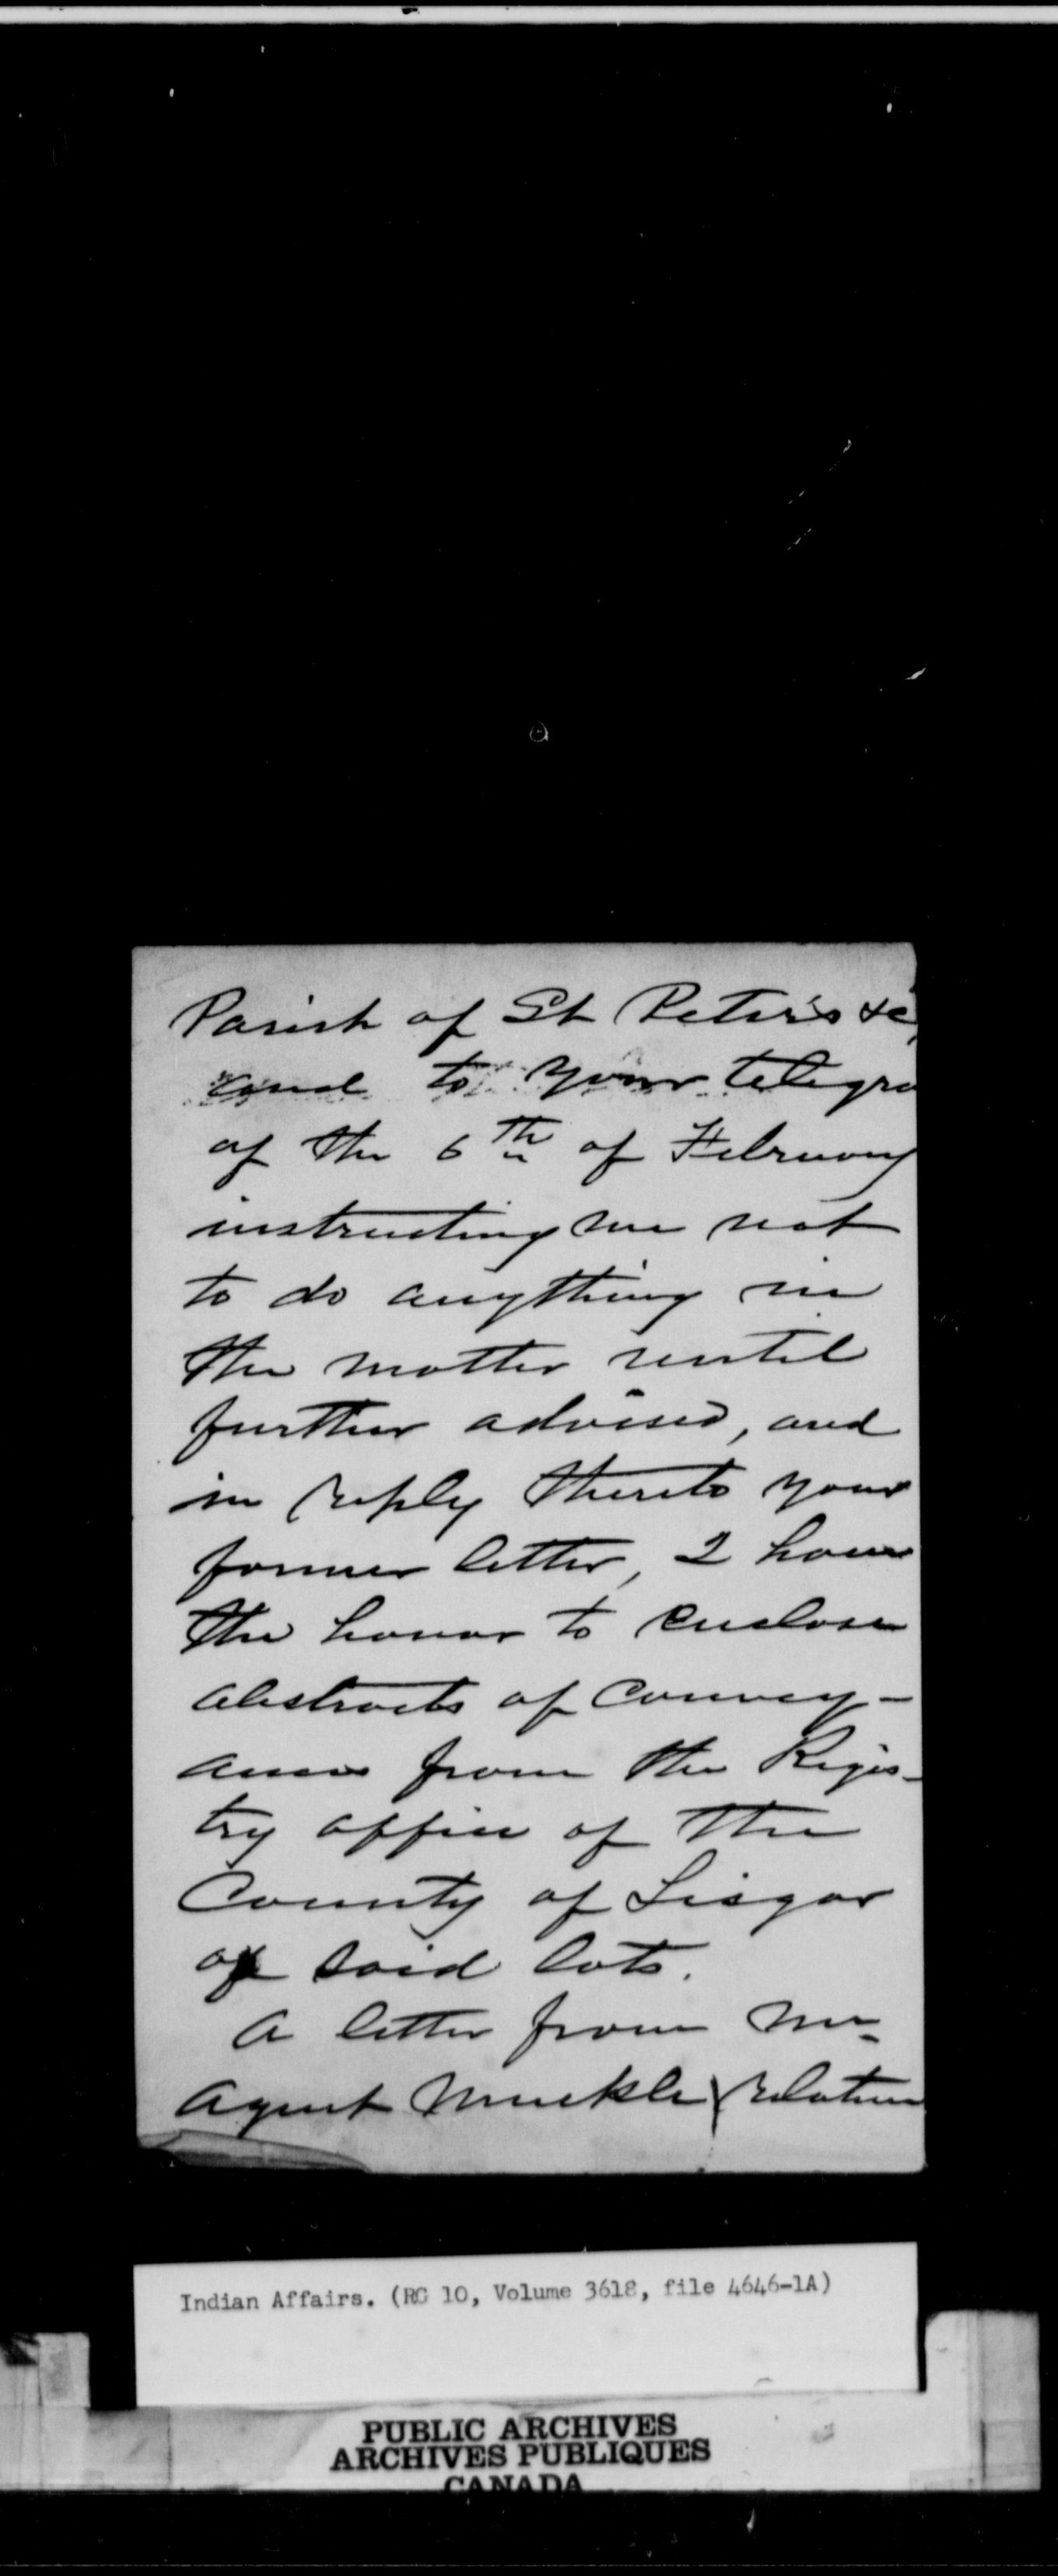 Parish of St Peter's &c,
and to your telegra
of the 6th of February
instructing me not
to do anything in
the matter until
further advised, and
in reply thereto your
former letter, I have
the honor to enclose
abstracts of Convey-
ances from the Regis-
try office of the
County of Lisgar
of said lots.
A letter from Mr
Agent Muckle relative
Indian Affairs. (RG 10, Volume 3618, file 4646-1A)
PUBLIC ARCHIVES
ARCHIVES PUBLIQUES
CANADA